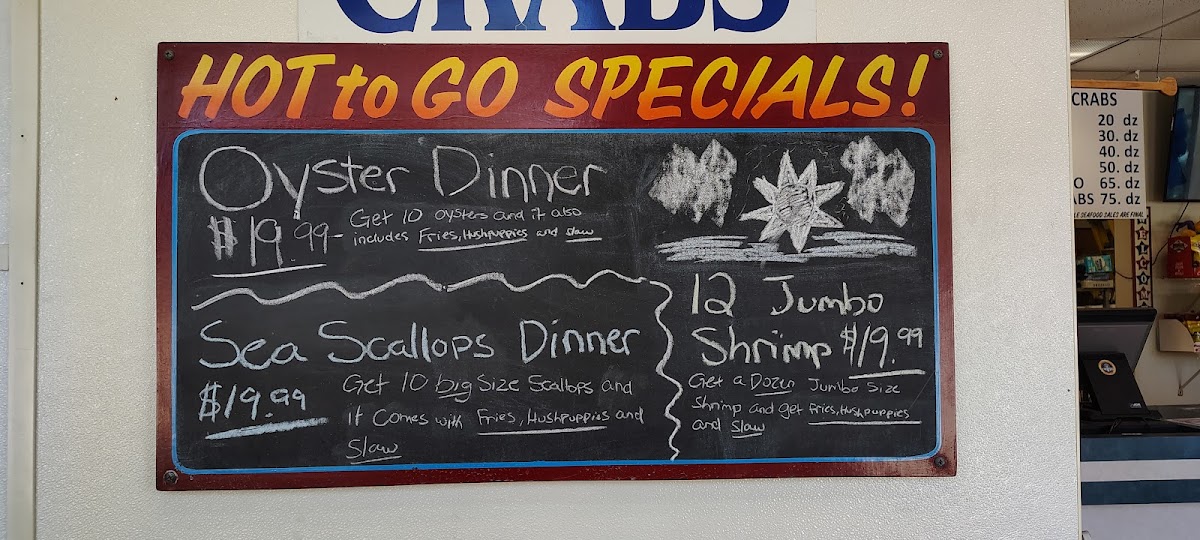 CRABS
HOT to GO SPECIALS!
Oyster Dinner
$19.99-
Get 10 oysters and it also
includes Fries, Hushpuppies and slaw
Sea Scallops Dinner
$19.99
Get 10 big Size Scallops and
it Comes with Fries, Hushpuppies and
Slaw
12 Jumbo
Shrimp $19.99
Get a Dozen Jumbo Size
Shrimp and get Fries, Hushpuppies
and Slaw
CRABS
20 dz
30. dz
40. dz
50. dz
O 65. dz
ABS 75. dz
LE SEAFOOD SALES ARE FINAL
WELCOME